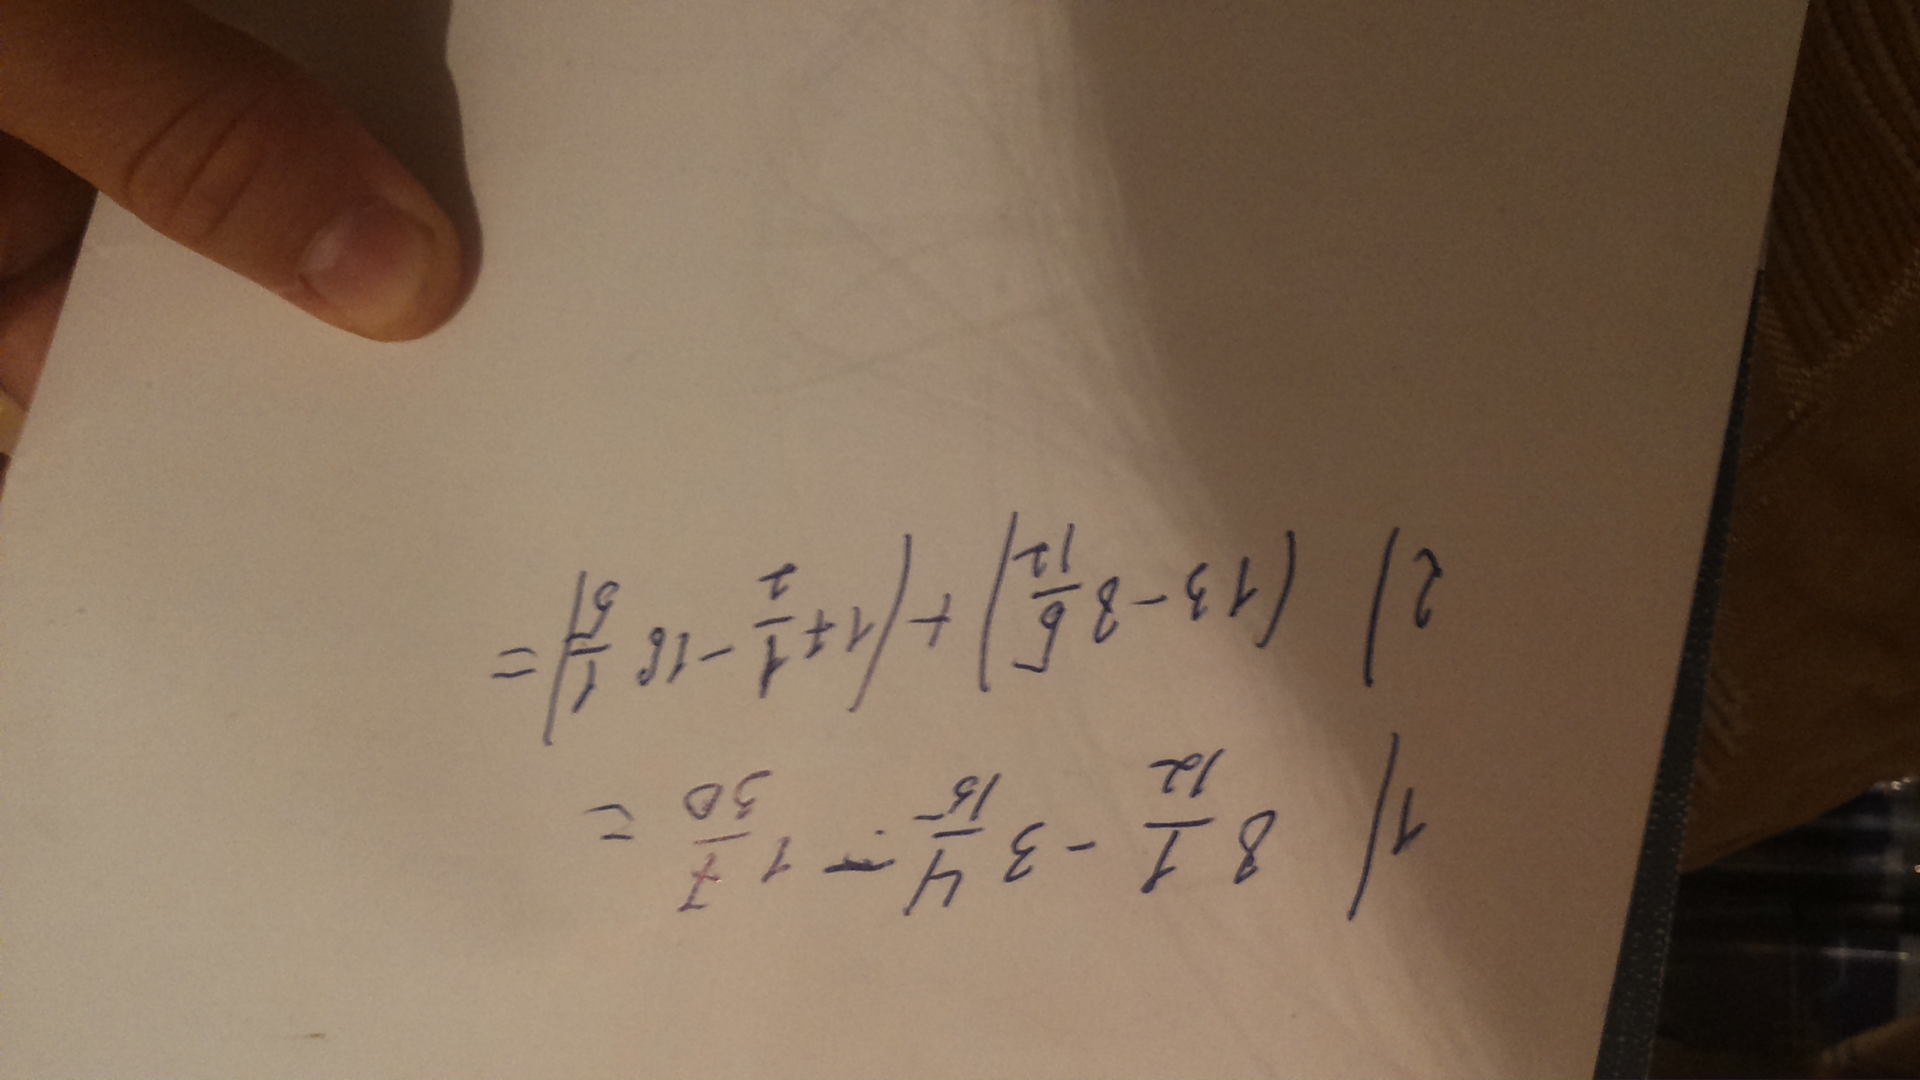 1) 8 1/12 - 3 4/15 - 1 7/30 =
2) (13 - 8 5/12) + (17 1/2 - 16 1/5) =